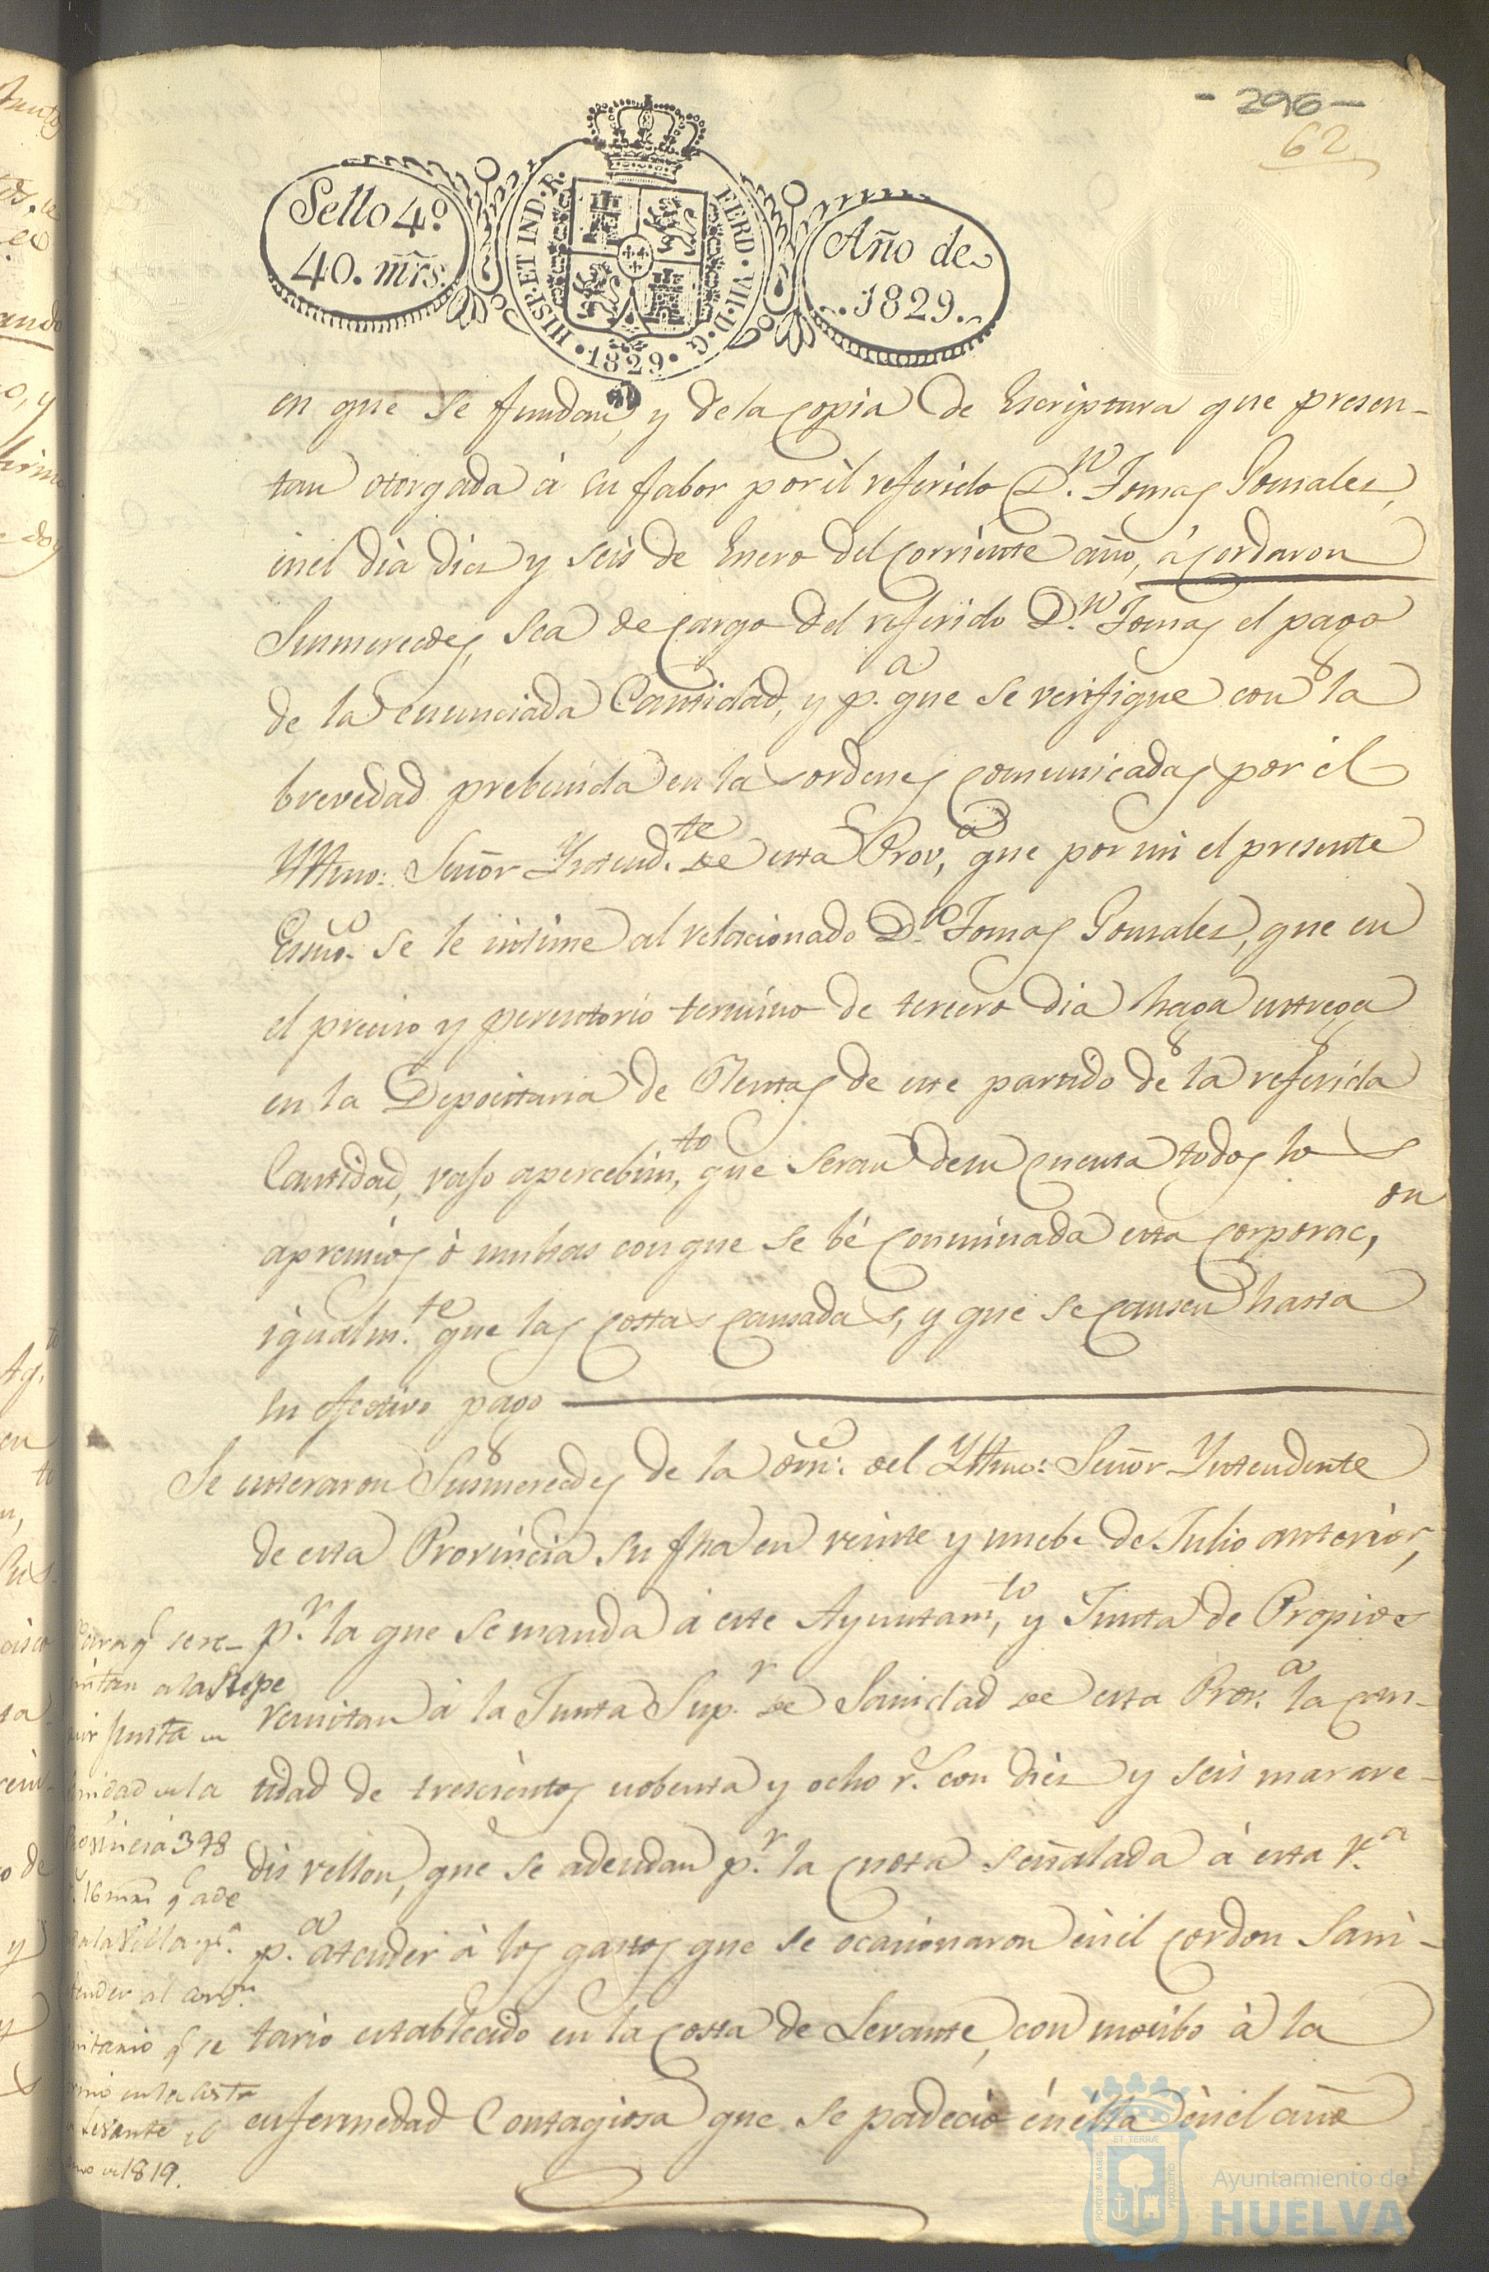 - 296 -
62
Sello 4º.
40. mrs.
HISP. ET IND. R.
FERD. VII. D. G.
1829
Año de
1829.
en que se fundan, y de la copia de Escriptura que presen-
tan otorgada á su fabor por él referido D.n Tomas Gonsales,
en el dia dies y seis de Enero del corriente año, ácordaron
Susmercedes, sea de cargo del referido D.n Tomas el pago
de la enunciada Cantidad, y p.a que se verifique con la
brevedad prebenida en las ordenes comunicadas por él
Yltmo: Señor Yntend.te de esta Prov,a que por mi el presente
Essno. se le intime al relacionado D.n Tomas Gonsales, que en
el preciso y perentorio termino de tercero dia haga entrega
en la Depocitaria de Rentas de este partido de la referida
Cantidad, vajo apercebim,to que seran de su cuenta todos los
apremios ó multas con que se bé conminada esta corporac,on
igualm.te que las costas causadas, y que se causen hasta
su efectivo pago
Se enteraron Susmercedes de la orn: del Yltmo: Señor Yntendente
de esta Provincia su fha en veinte y nuebe de Julio anterior,
p.r la que se manda á este Ayuntam,to y Junta de Propios
remitan á la Junta Sup.r de Sanidad de esta Prov.a la can-
tidad de trescientos nobenta y ocho r.s con dies y seis marave-
dis vellon, que se adeudan p.r la cuota señalada á esta V.a
p.a atender á los gastos que se ocacionaron en el cordon Sani-
tario establecido en la costa de Levante, con motibo á la
enfermedad Contagiosa que se padeció en élla en el año
Para q.e se re-
mitan a la Supe
rior Junta de
Sanidad de la
Provincia 398
r.s 16 mrs q.e ade
da la Villa p.a
atender al cord.n
Sanitario q.e se
en la Costa
de Levante el
año de 1819.
PORTUS MARIS
ET TERRÆ
CUSTODIA
Ayuntamiento de
HUELVA